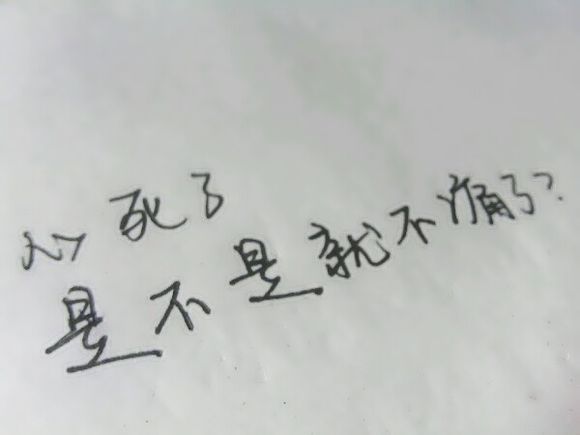 心死了
是不是就不痛了?